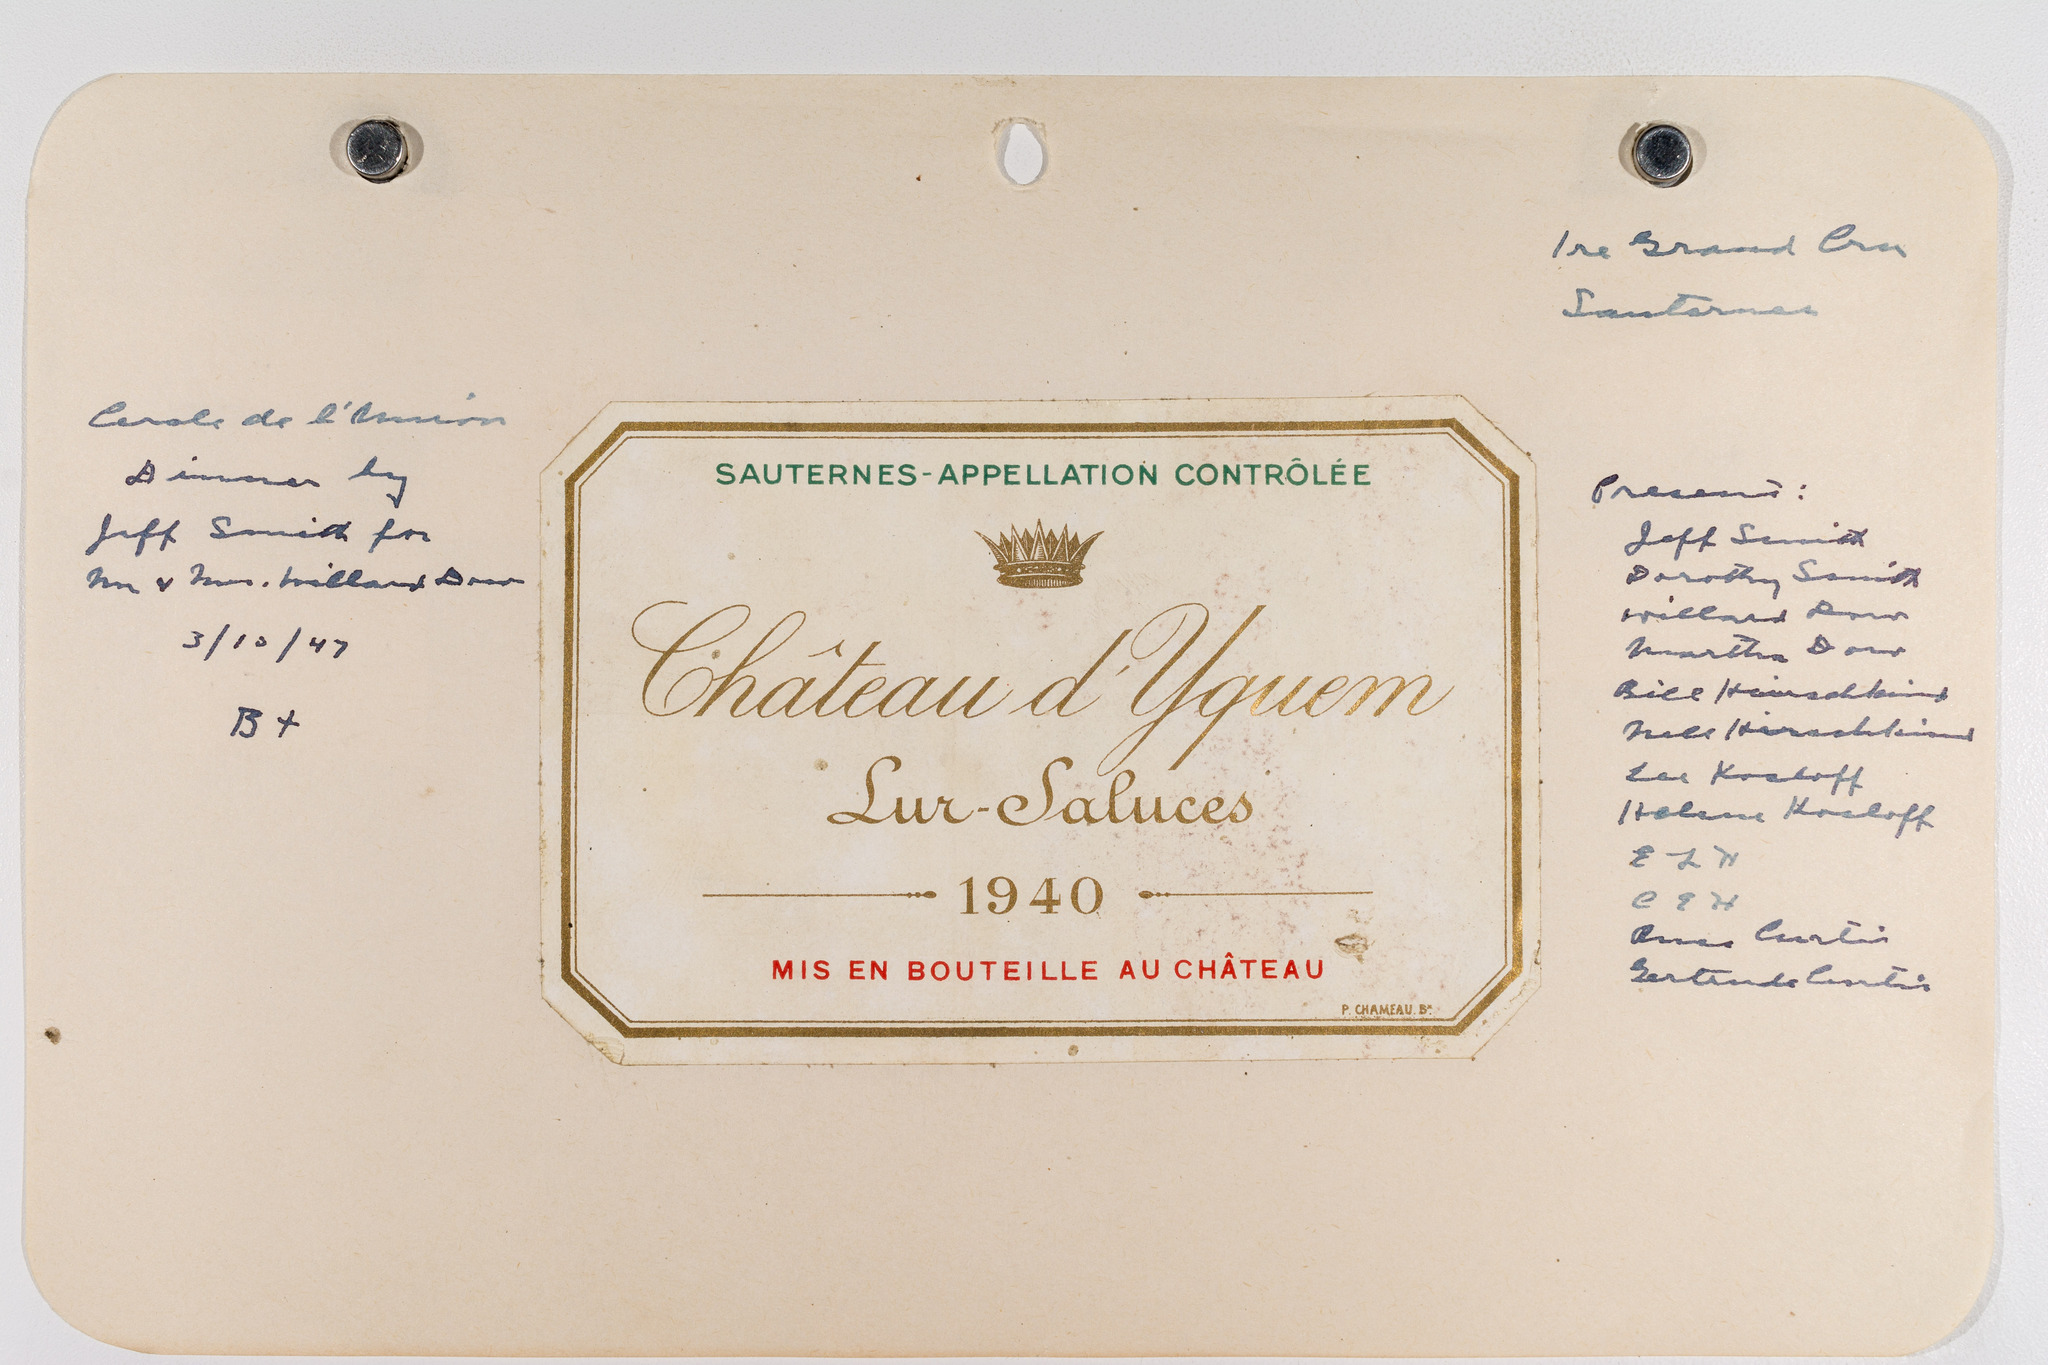 1re Grand Cru
Sauternes
Cercle de l'Union
Dinner by
Jeff Smith for
Mr & Mrs. Willard Dow
3/10/47
B+
SAUTERNES-APPELLATION CONTRÔLÉE
Château d'Yquem
Lur-Saluces
1940
MIS EN BOUTEILLE AU CHÂTEAU
P. CHAMEAU. Bx
Present:
Jeff Smith
Dorothy Smith
Willard Dow
Martha Dow
Bill Hirschkind
Nell Hirschkind
Lee Kosloff
Helene Kosloff
E L H
C E H
Curtis
Gertrude Curtis